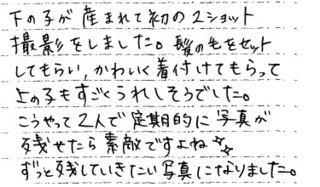 下の子が産まれて初の2ショット
撮影をしました。髪の毛をセット
してもらい、かわいく着付けてもらって
上の子もすごくうれしそうでした。
こうやって2人で定期的に写真が
残せたら素敵ですよね☆☆
ずっと残していきたい写真になりました。